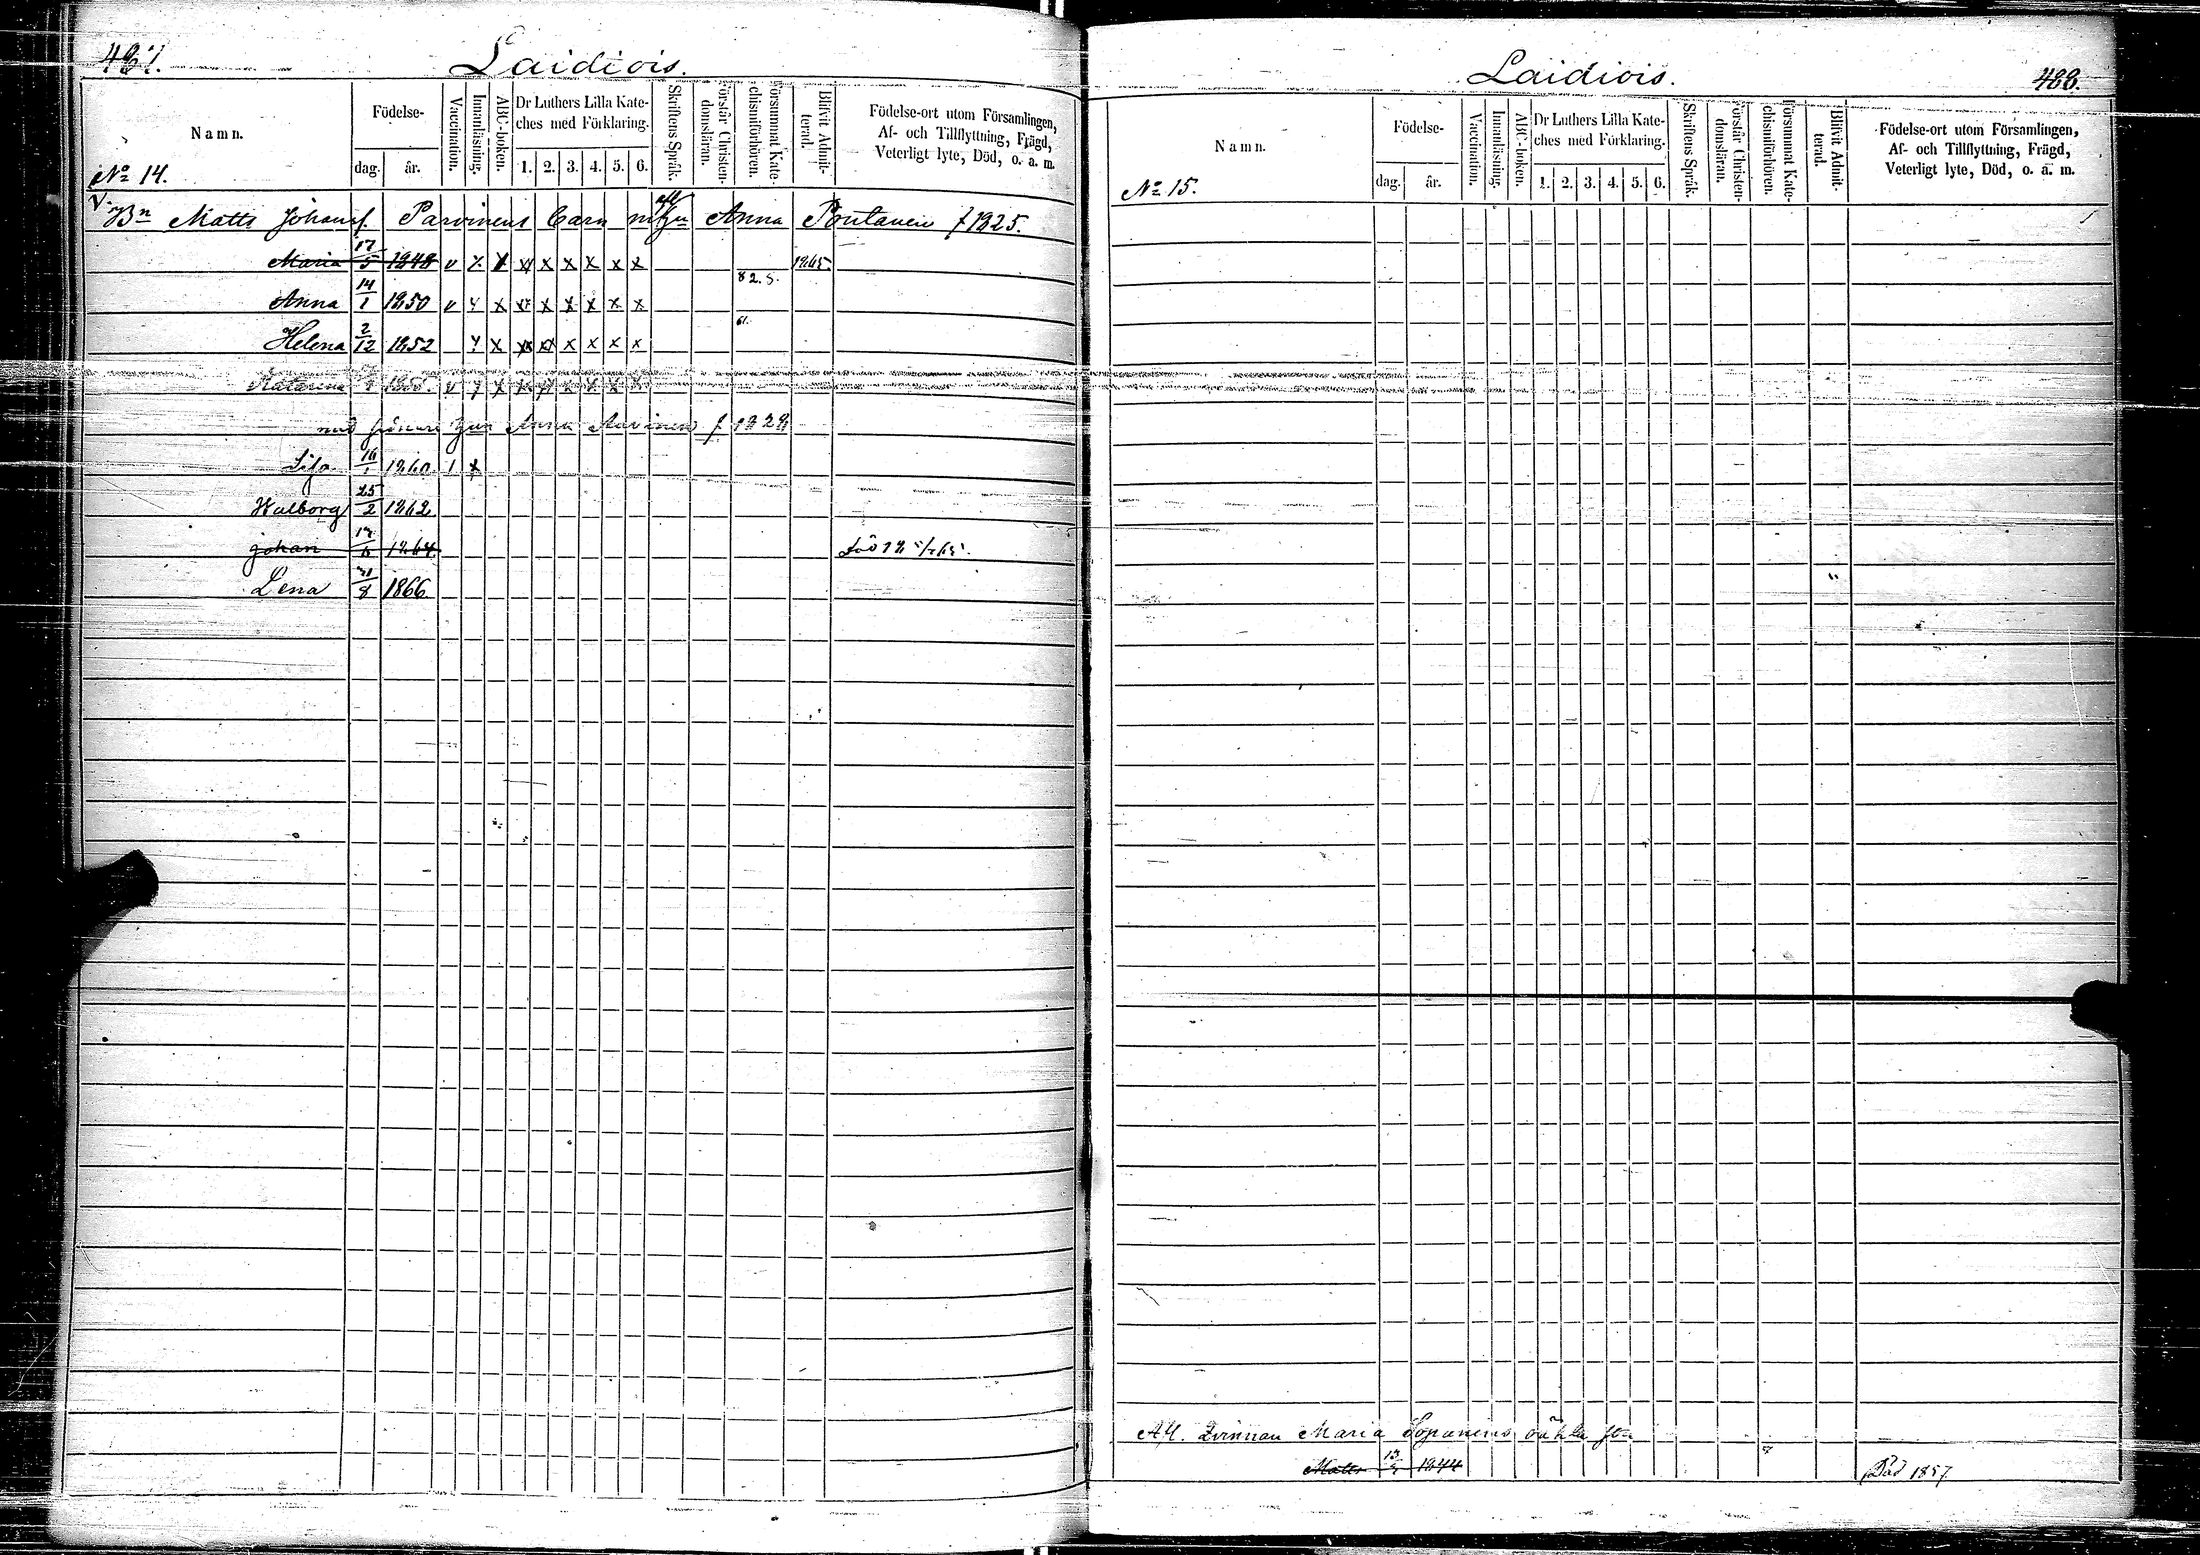 487.
Laidiois.
Namn.
Födelse-
dag.
år.
Vaccination.
Innanläsning.
ABC-boken.
Dr Luthers Lilla Kate-
ches med Förklaring.
1. 2. 3. 4. 5. 6.
Skriftens Språk.
Förstår Christen-
domsläran.
Försummat Kate-
chismiförhören.
Blifvit Admit-
terad.
Födelse-ort utom Församlingen,
Af- och Tillflyttning, Frägd,
Veterligt lyte, Död, o. a. m.
No 14.
Bn Matts Johansf. Parvinens barn m Anna Pontanen f 1825.
Maria 17/5 1848 v x x x x x x x 1865.
82. 5.
Anna 14/1 1850 v x x x x x x x
61.
Helena 2/12 1852 x x x x x x x
Katarina v x x x x x x x
med Anna Auvinen f 1828
Lisa 16/1 1860. 1 x
Walborg 25/2 1862
Johan 1864.
Lena 31/8 1866
Laidiois.
488.
Namn.
Födelse-
dag.
år.
Vaccination.
Innanläsning.
ABC-boken.
Dr Luthers Lilla Kate-
ches med Förklaring.
1. 2. 3. 4. 5. 6.
Skriftens Språk.
Förstår Christen-
domsläran.
Försummat Kate-
chismiförhören.
Blifvit Admit-
terad.
Födelse-ort utom Församlingen,
Af- och Tillflyttning, Frägd,
Veterligt lyte, Död, o. a. m.
No 15.
Maria Sopanens oäkta
Matts 1844 Död 1857.